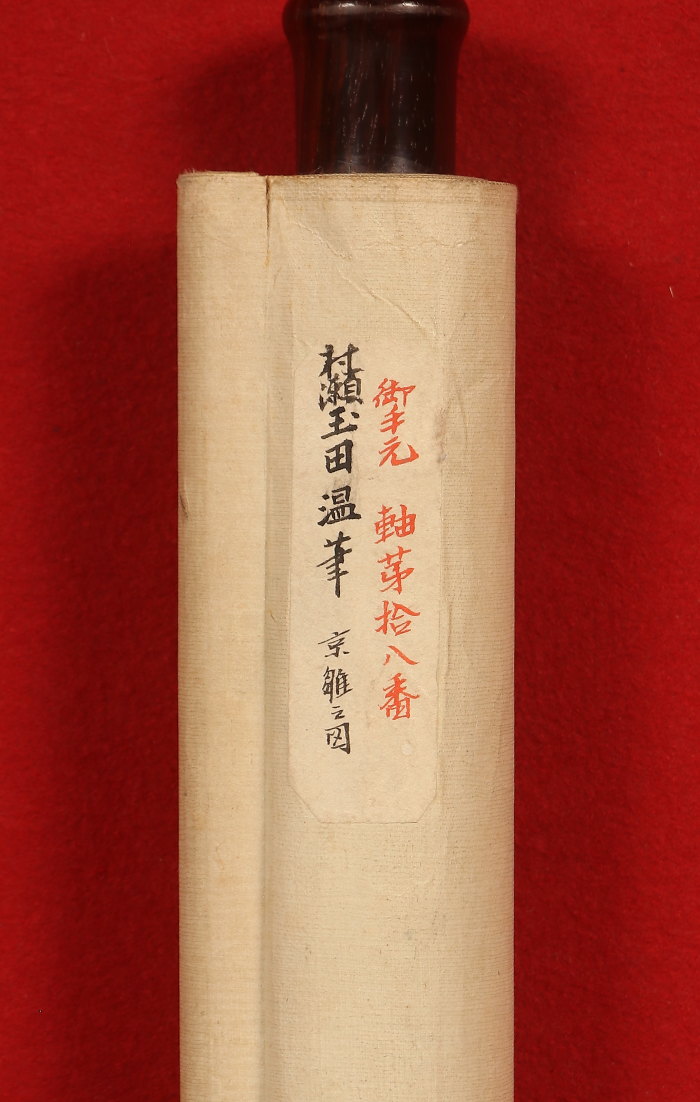 御手元 軸第拾八番
村瀬玉田温筆 京雛之図